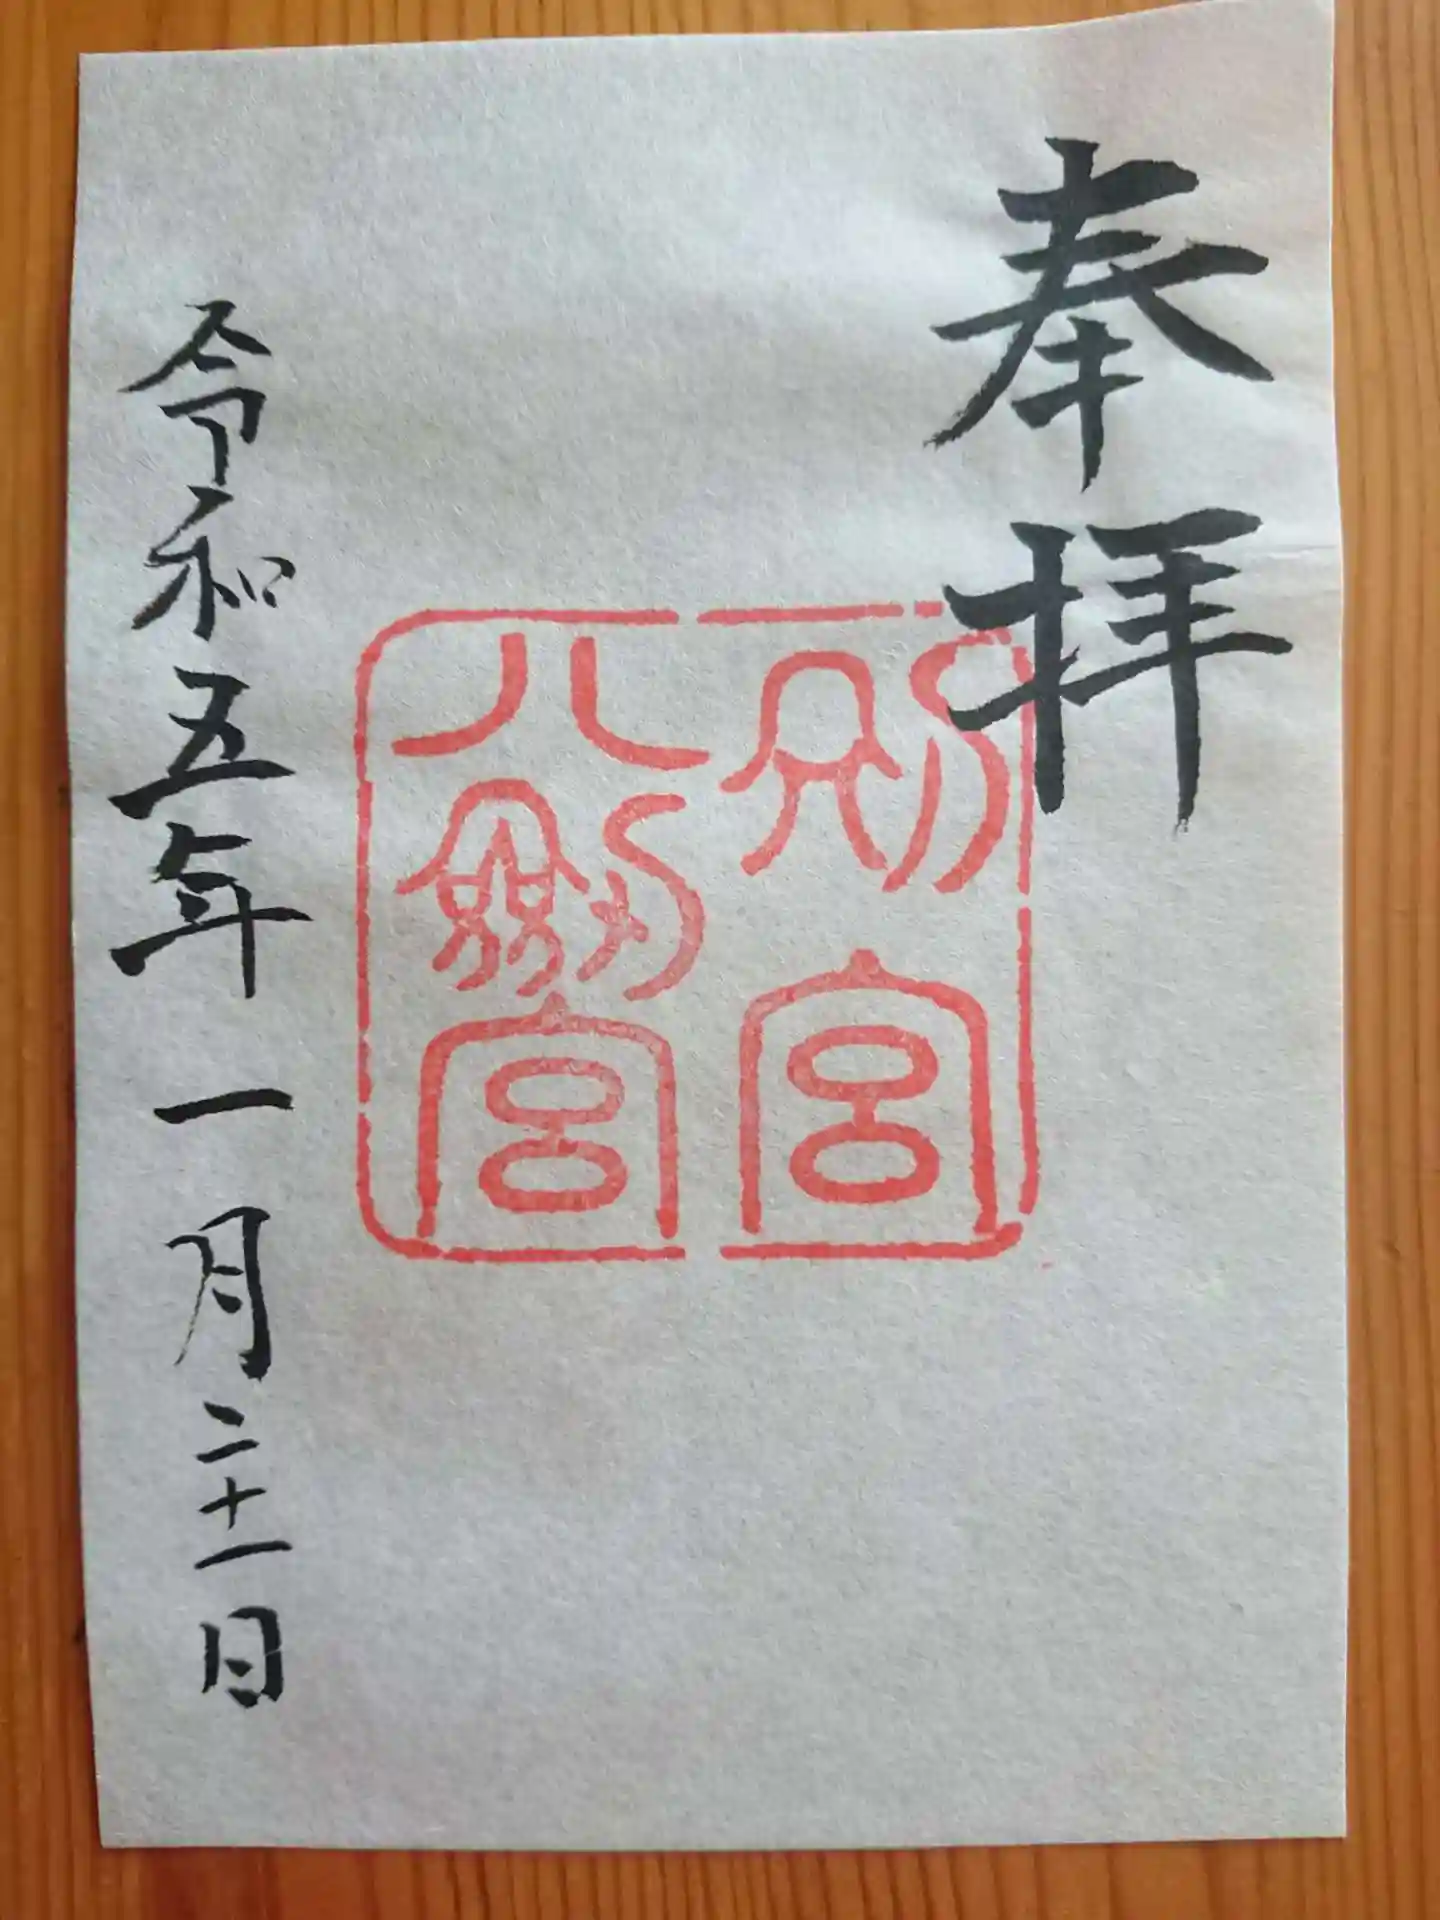 奉拝
別宮
八劔宮
令和五年一月二十一日